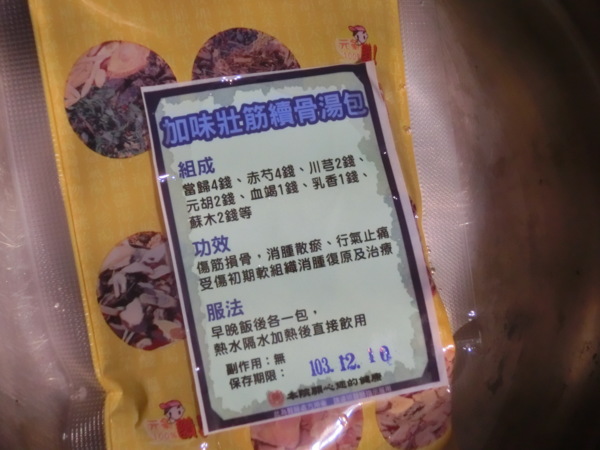 加味壯筋續骨湯包
組成
當歸4錢、赤芍4錢、川芎2錢、
元胡2錢、血竭1錢、乳香1錢、
蘇木2錢等
功效
傷筋損骨，消腫散瘀、行氣止痛
受傷初期軟組織消腫復原及治療
服法
早晚飯後各一包，
熱水隔水加熱後直接飲用
副作用：無
保存期限：
103.12.10
本院關心您的健康